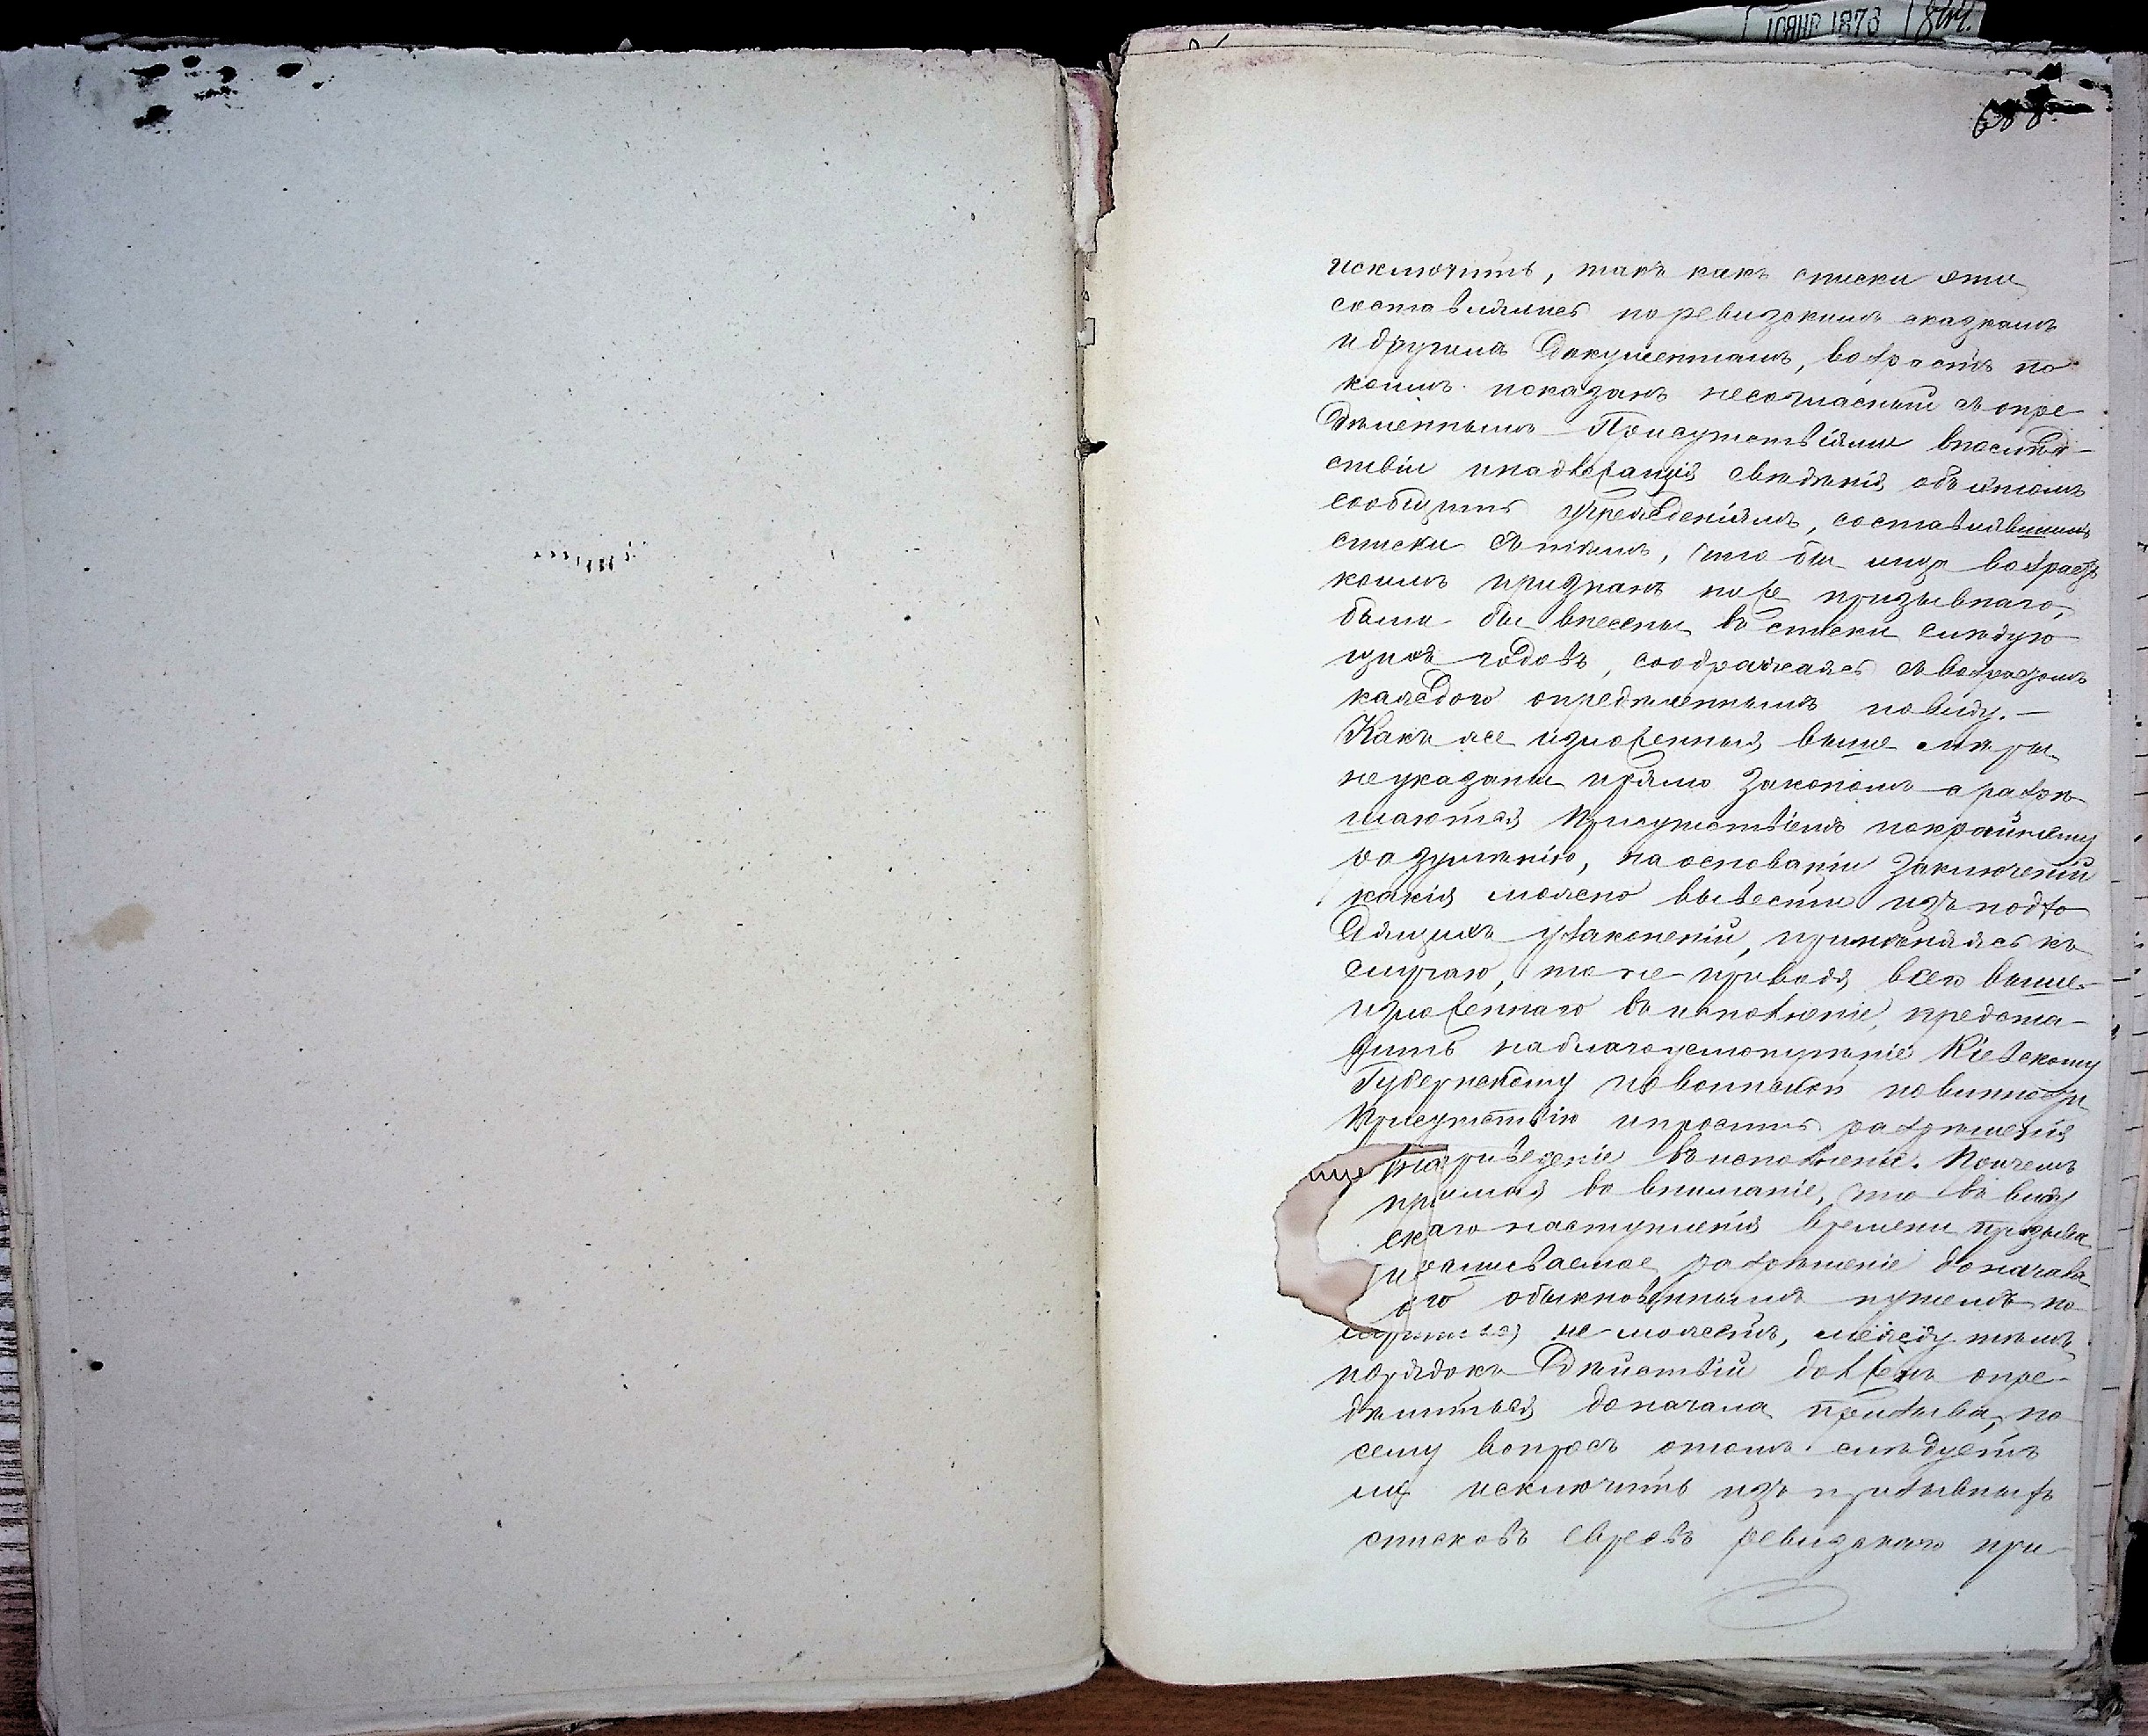 10 ЯНВ 1876
исключить, такъ какъ списки эти
составлялись по ревизскимъ сказкамъ
и другимъ документамъ, возрастъ по
коимъ показанъ несогласный съ опре-
дѣленнымъ Присутствіями впослѣд-
ствіи и надлежащія свѣдѣнія объ этомъ
сообщить учрежденіямъ, составлявшимъ
списки съ тѣмъ, что бы лица возрастъ
коимъ признанъ ниже призывнаго,
были бы внесены въ списки слѣдую-
щихъ годовъ, соображаясь съ возрастомъ
каждого опредѣленнымъ по виду. —
Какъ же изложенныя выше мѣры
не указаны прямо Закономъ а разрѣ-
шаются Присутствіемъ по крайнему
разумѣнію, на основаніи Заключеній
какія можно вывести изъ подхо-
дящихъ узаконеній, примѣняясь къ
случаю, то не приводя всего выше-
изложеннаго въ исполненіе, предста-
вить на благоусмотрѣніе Кіевскому
Губернскому по воинской повинности
Присутствію и просить разрѣшенія
на приведеніе въ исполненіе. Причемъ
принимая во вниманіе, что въ виду
скаго наступленія времени призыва
испрашиваемое разрѣшеніе до начала
его обыкновеннымъ путемъ по-
не можетъ, между тѣмъ
порядокъ дѣйствій долженъ опре-
дѣлиться до начала призыва, по
сему вопросъ о томъ слѣдуетъ
ли исключить изъ призывныхъ
списковъ евреевъ ревизскаго при-